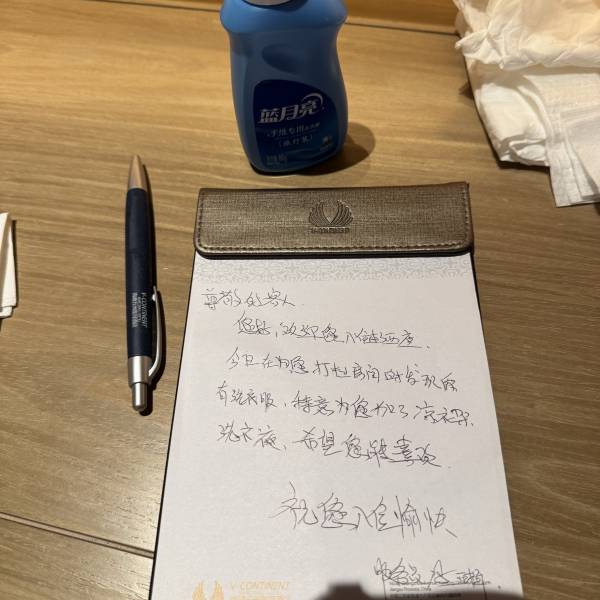 蓝月亮
手洗专用洗衣液
(旅行装)
V-CONTINENT
V-CONTINENT
尊敬的客人
您好,欢迎您入住酒店.
今日在为您打扫房间时发现您
有洗衣服,特意为您加了凉衣架.
洗衣液、希望您能喜欢.
祝您入住愉快
V-CONTINENT